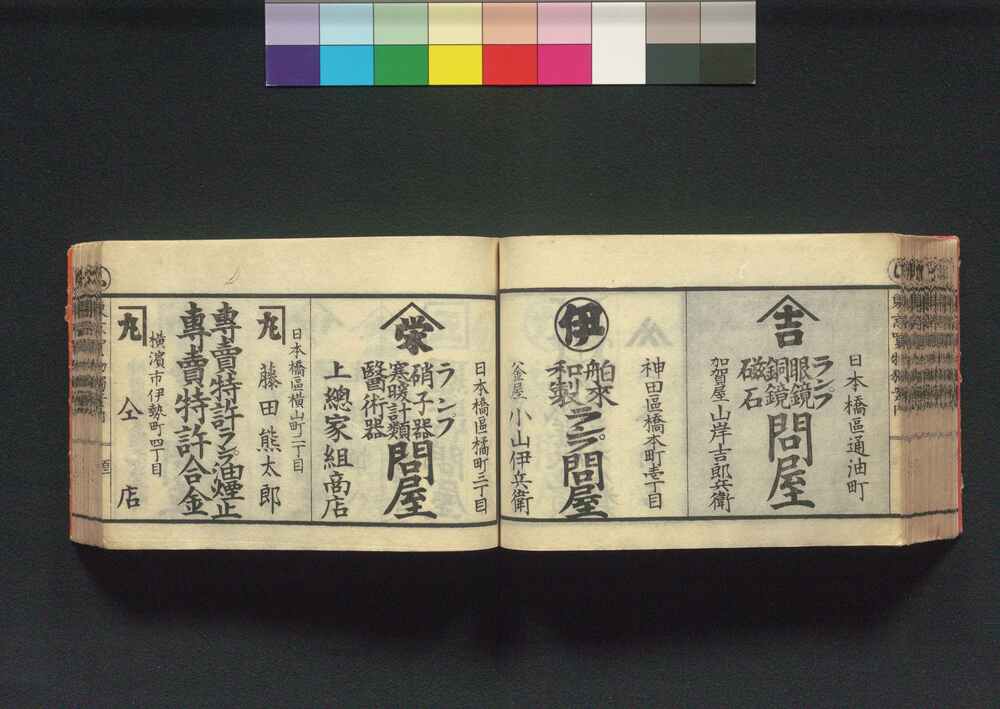 日本橋區通油町
吉
ランプ
眼鏡
銅鏡
磁石
問屋
加賀屋 山岸吉郎兵衛
神田區橋本町壱丁目
伊
舶來
和製
ランプ問屋
釜屋 小山伊兵衛
日本橋區橘町三丁目
栄
ランプ
硝子器
寒暖計類
醫術器
問屋
上總家組商店
日本橋區横山町二丁目
九
藤田熊太郎
專賣特許ランプ油煙止
專賣特許合金
横濱市伊勢町四丁目
九
仝店